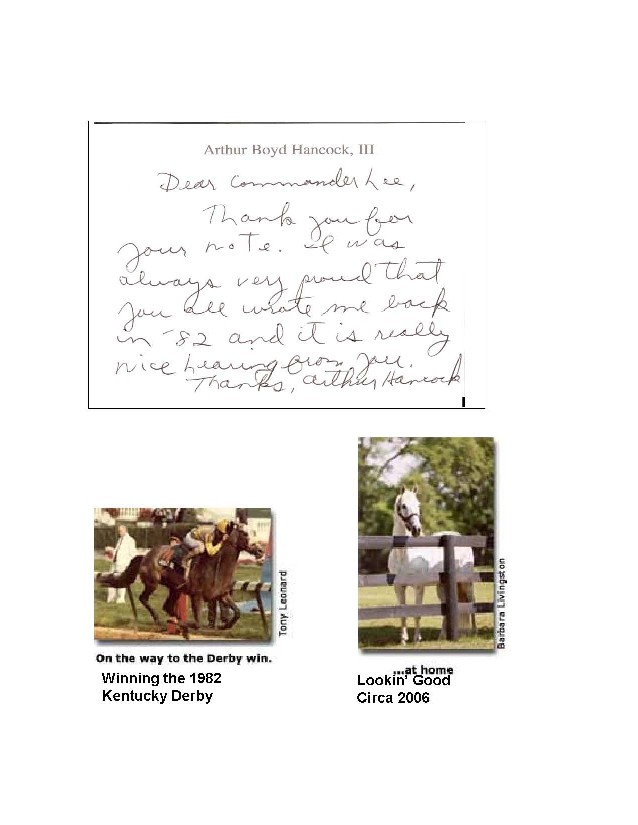 Arthur Boyd Hancock, III
Dear Commander Lee,
Thank you for
your note. I was
always very proud that
you all wrote me back
in '82 and it is really
nice hearing from you.
Thanks, Arthur Hancock
Tony Leonard
On the way to the Derby win.
Winning the 1982
Kentucky Derby
Barbara Livingston
...at home
Lookin' Good
Circa 2006